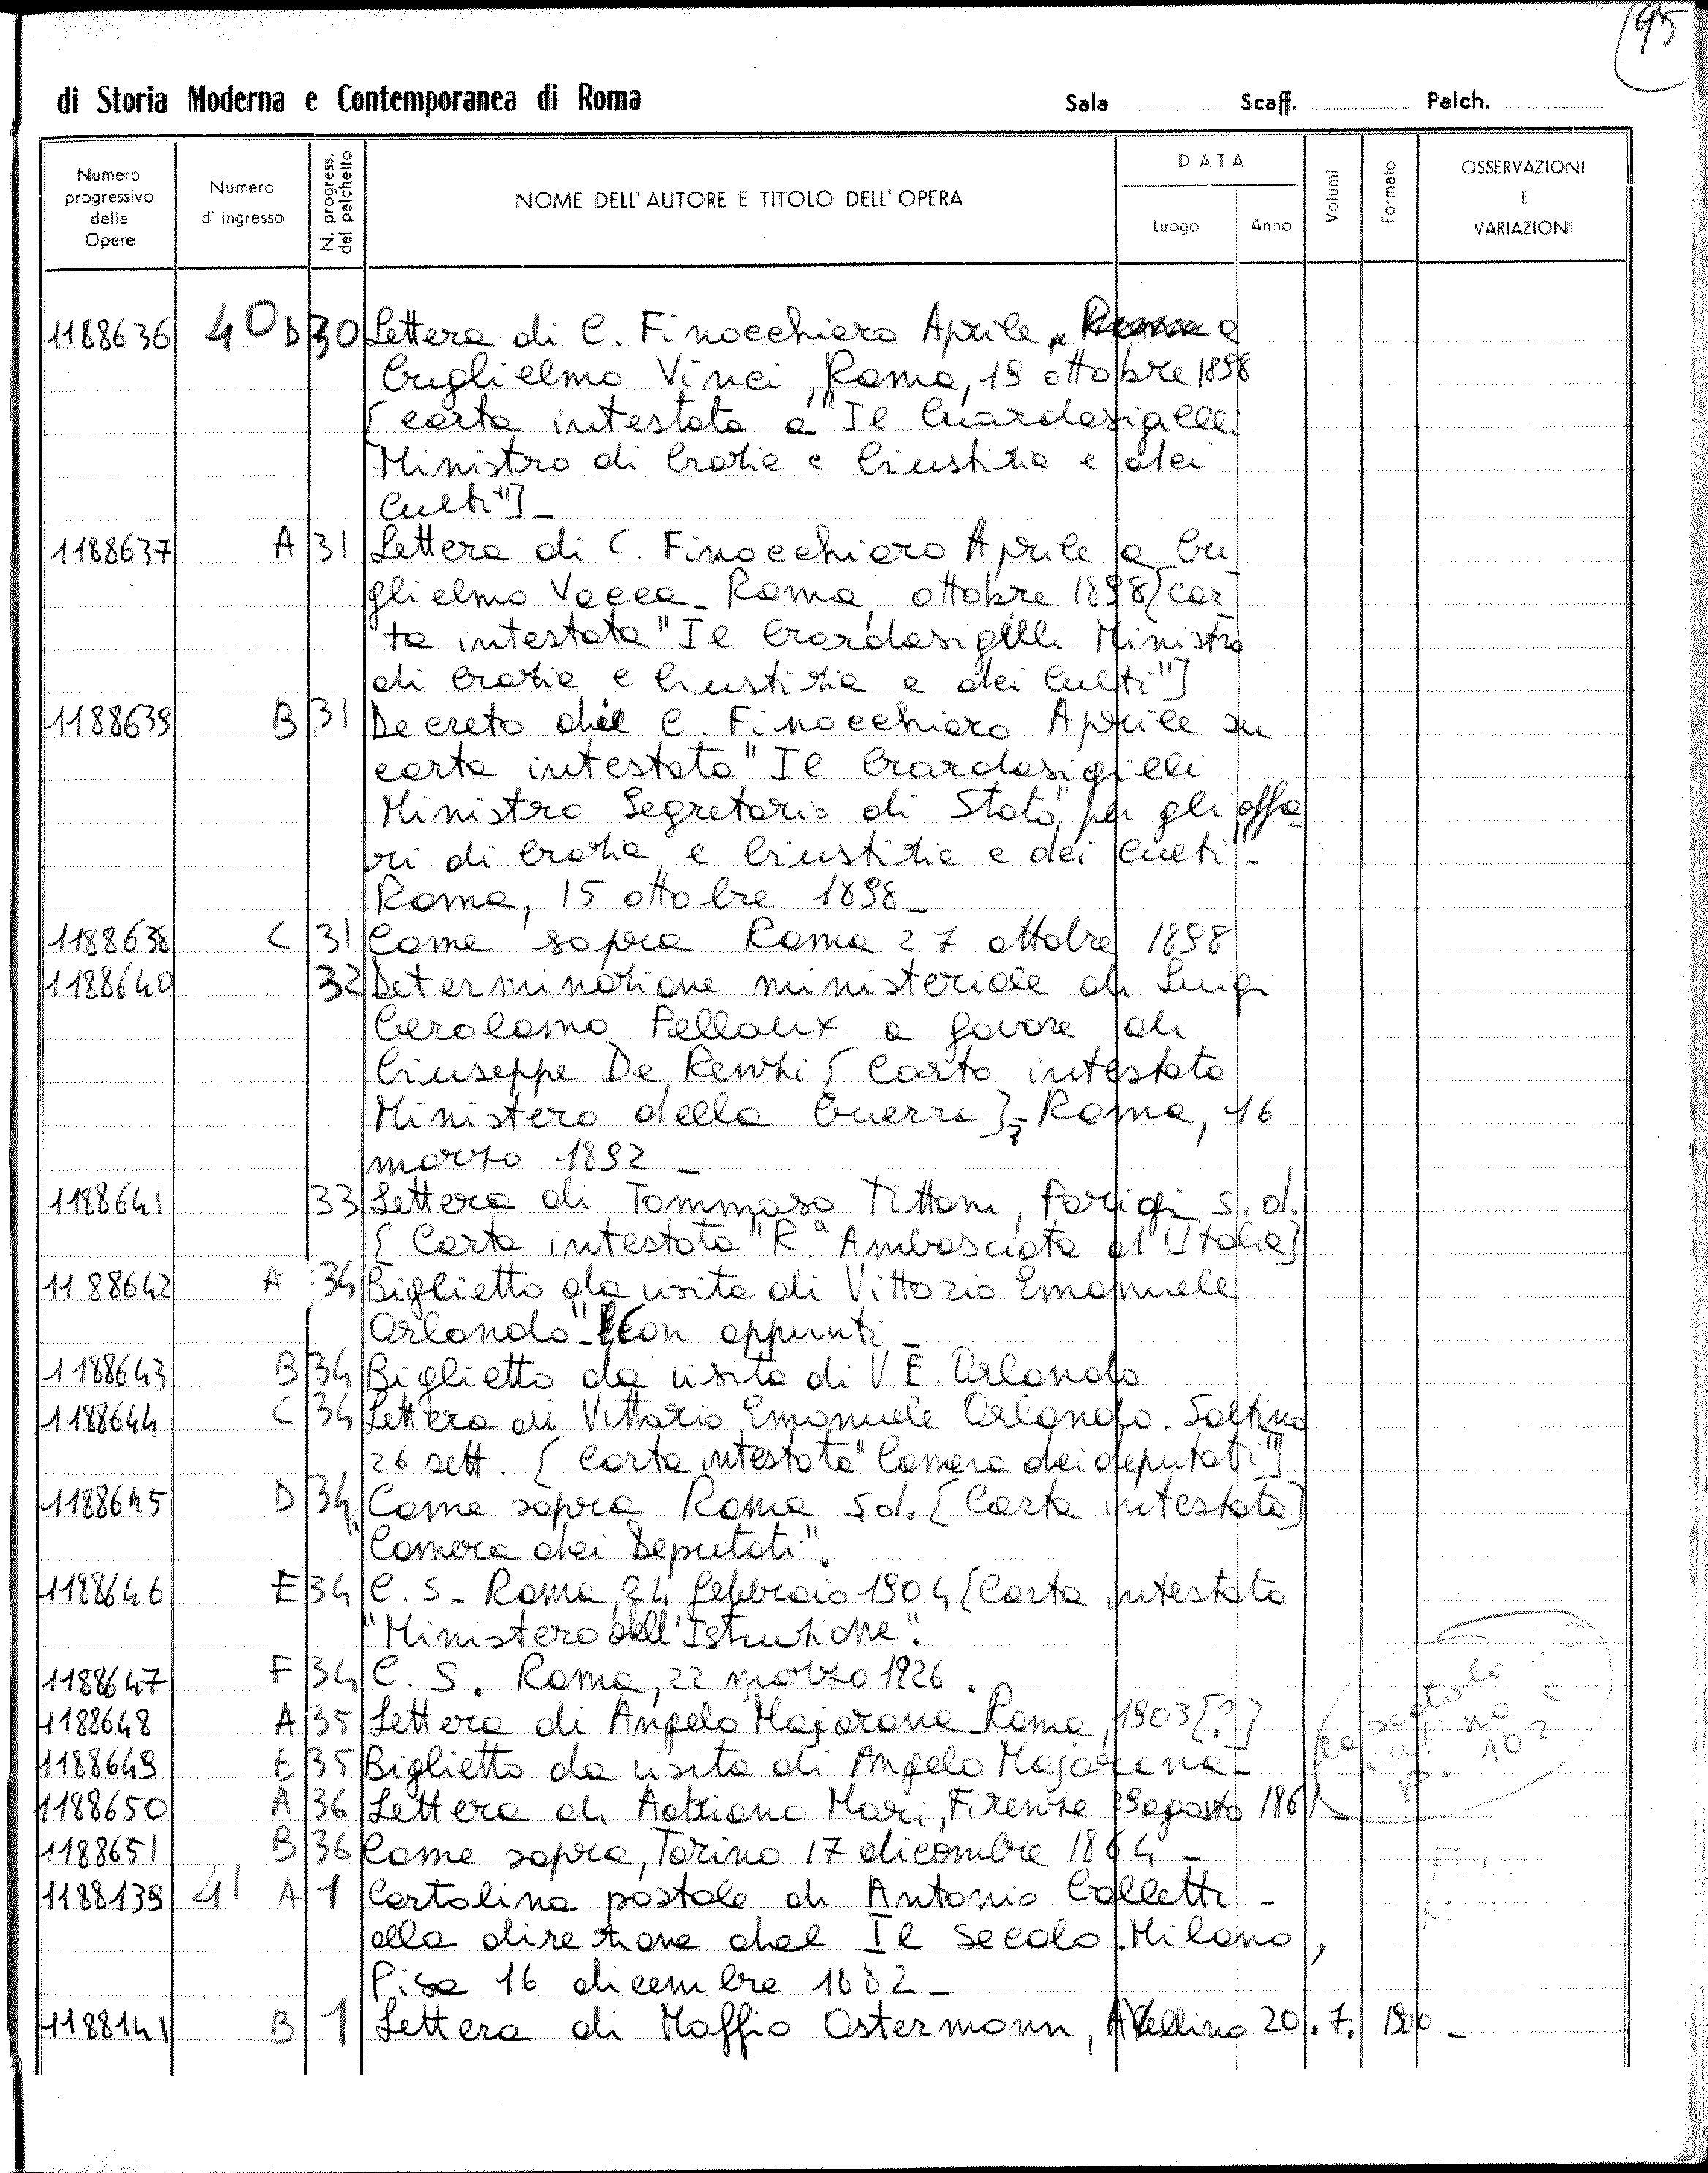 95
di Storia Moderna e Contemporanea di Roma Sala Scaff. Palch.
Numero progressivo delle Opere
Numero d'ingresso
N. progress. del palchetto
NOME DELL'AUTORE E TITOLO DELL'OPERA
DATA
Luogo
Anno
Volumi
Formato
OSSERVAZIONI E VARIAZIONI
1188636 40 D 30 Lettera di C. Finocchiaro Aprile a
Guglielmo Vinci, Roma, 19 ottobre 1898
[carta intestata a "Il Guardasigilli
Ministro di Grazia e Giustizia e dei
Culti"]_
1188637 A 31 Lettera di C. Finocchiaro Aprile a Gu_
glielmo Vacca_ Roma, ottobre 1898 [car_
ta intestata "Il Guardasigilli Ministro
di Grazia e Giustizia e dei Culti"]
1188639 B 31 Decreto di C. Finocchiaro Aprile su
carta intestata "Il Guardasigilli
Ministro Segretario di Stato per gli affa_
ri di Grazia e Giustizia e dei Culti"_
Roma, 15 ottobre 1898_
1188638 C 31 Come sopra Roma 27 ottobre 1898
1188640 32 Determinazione ministeriale di Luigi
Gerolamo Pelloux a favore di
Giuseppe De Renzi [Carta intestata
Ministero della Guerra]_ Roma, 16
marzo 1892_
1188641 33 Lettera di Tommaso Tittoni, Parigi s.d.
[Carta intestata "R.ª Ambasciata d'Italia]
1188642 A 34 Biglietto da visita di Vittorio Emanuele
Orlando"_ con appunti_
1188643 B 34 Biglietto da visita di V. E. Orlando
1188644 C 34 Lettera di Vittorio Emanuele Orlando. Saltino
26 sett. [Carta intestata "Camera dei deputati"]
1188645 D 34 Come sopra Roma s.d. [Carta intestata]
"Camera dei Deputati".
1188646 E 34 C.S_ Roma, 24 febbraio 1904 [Carta intestata
"Ministero dell'Istruzione".
1188647 F 34 C.S. Roma, 22 marzo 1926.
1188648 A 35 Lettera di Angelo Majorana_ Roma, 1903 [?]
1188649 35 Biglietto da visita di Angelo Majorana_
1188650 A 36 Lettera di Adriano Mari, Firenze 29 agosto 186
1188651 B 36 Come sopra, Torino 17 dicembre 1864_
1188139 41 A 1 Cartolina postale di Antonio Colletti_
alla direzione del Il Secolo. Milano,
Pisa 16 dicembre 1882_
1188141 B 1 Lettera di Maffio Ostermann, Avellino 20.7. 1900_